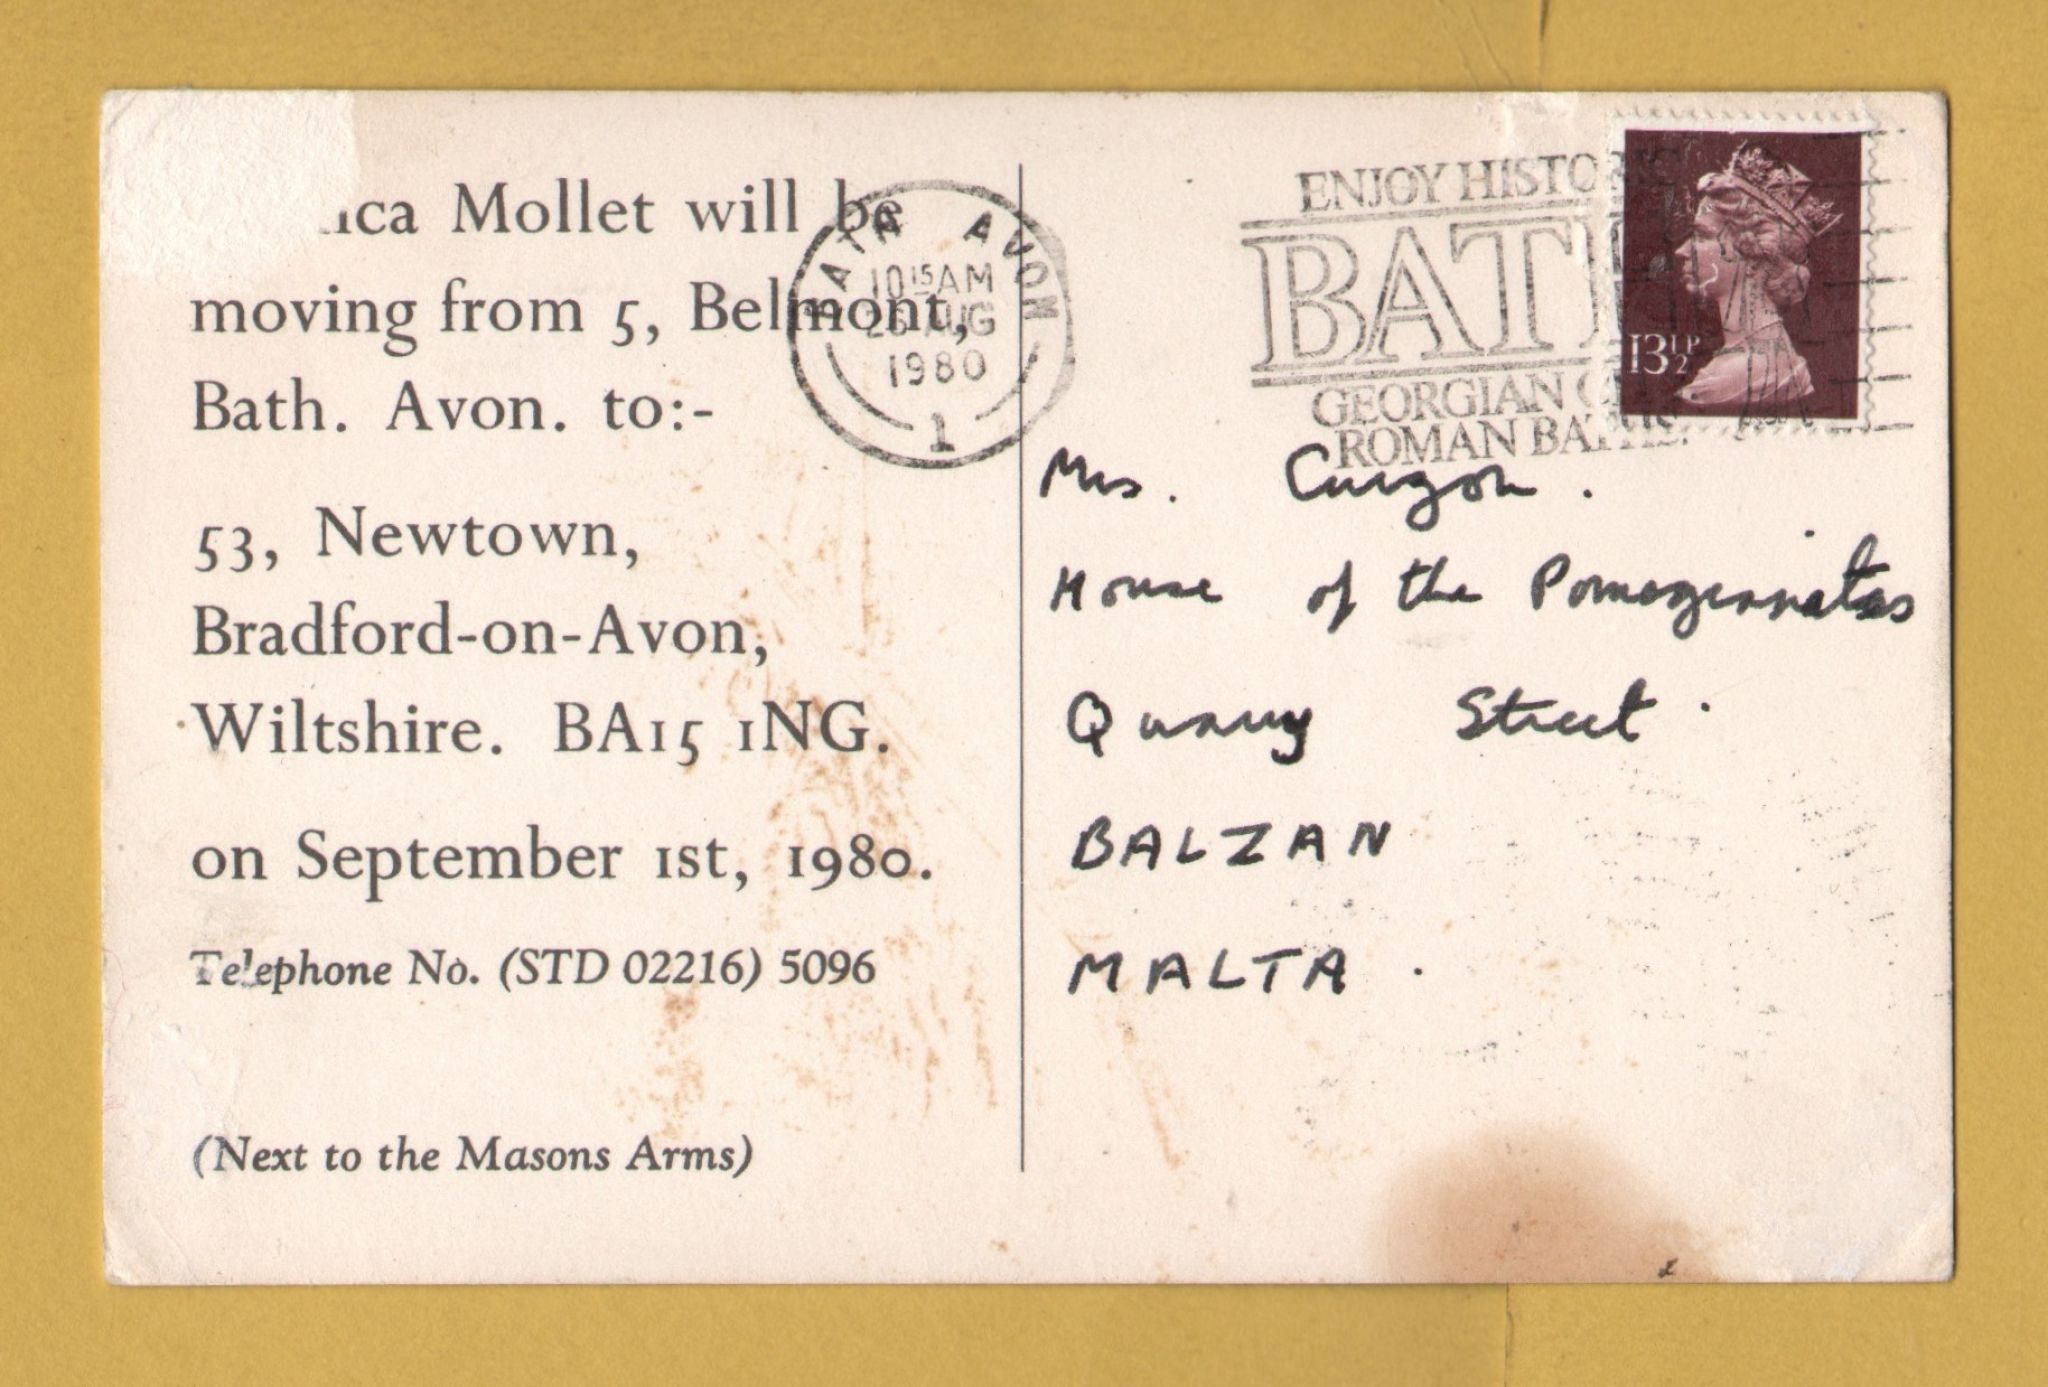 Mollet will be
moving from 5, Belmont,
Bath. Avon. to:-
53, Newtown,
Bradford-on-Avon,
Wiltshire. BA15 1NG.
on September 1st, 1980.
Telephone No. (STD 02216) 5096
(Next to the Masons Arms)
BATH AVON
10 15 AM
AUG
1980
1
ENJOY HISTORIC
BATH
GEORGIAN
ROMAN BATHS
13½P
Mrs. Curzon.
House of the Pomegrennates
Quarry Street.
BALZAN
MALTA.